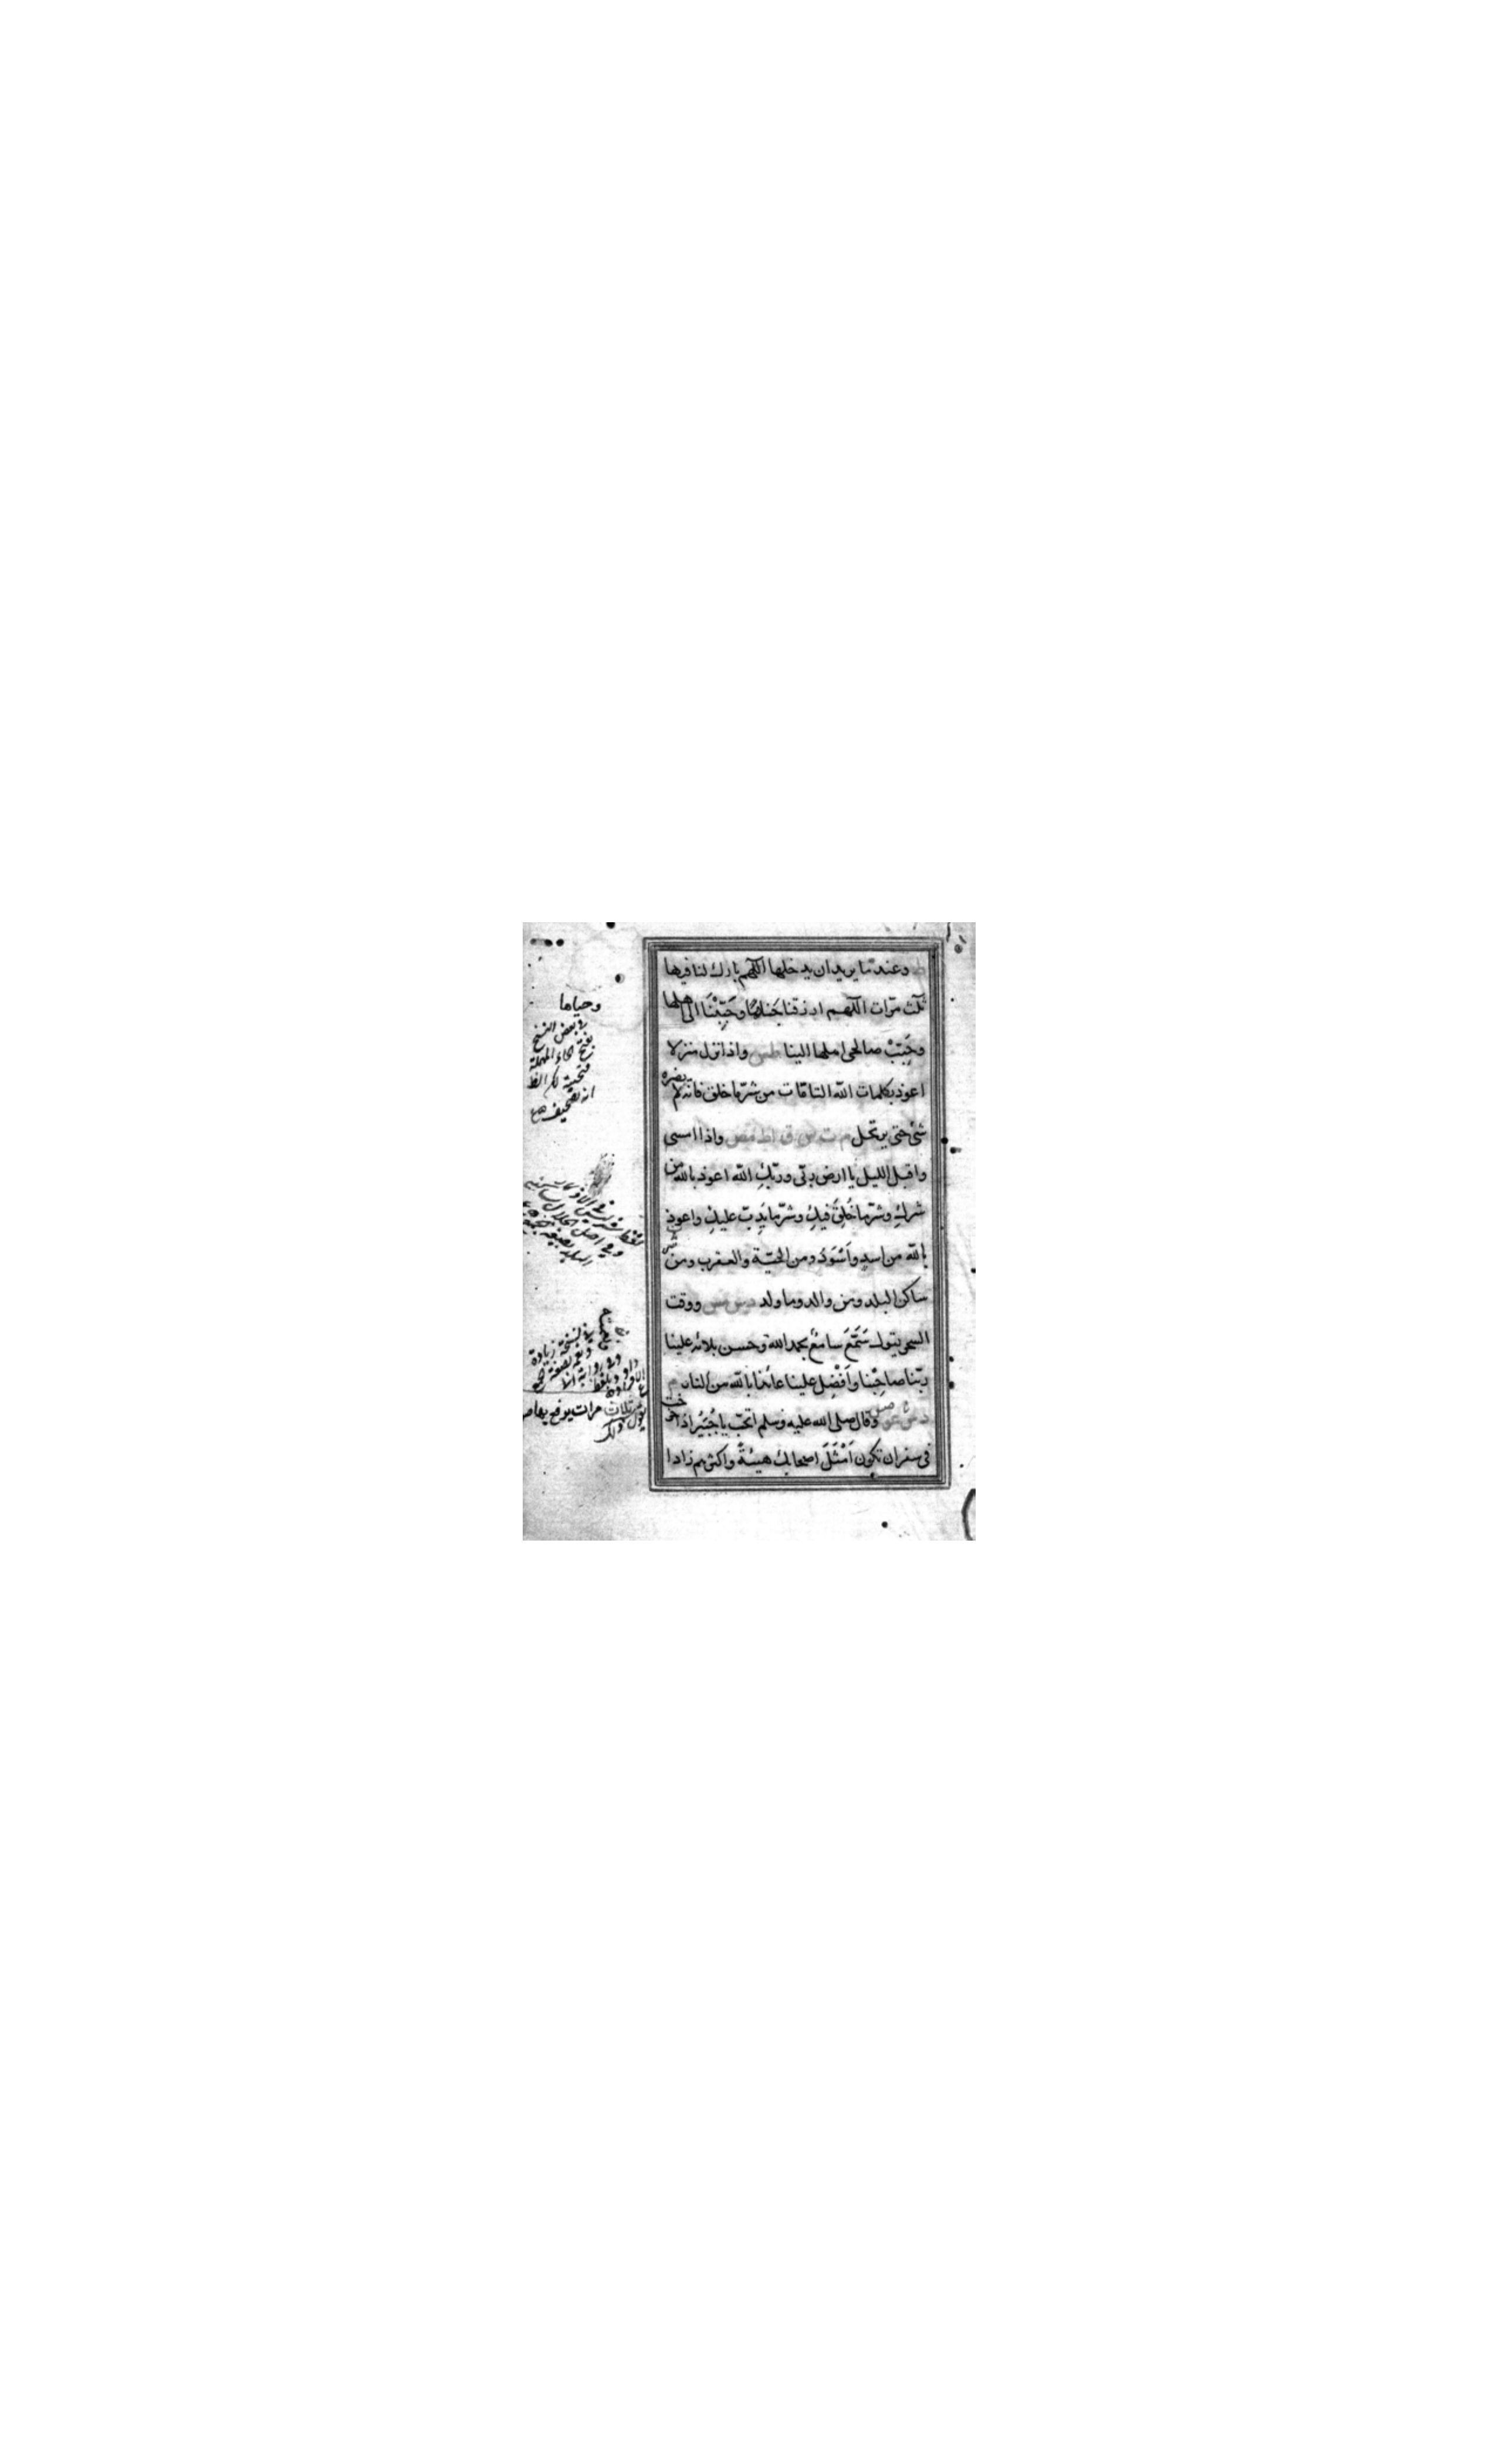 وعند ما يريد ان يدخلها اللهم بارك لنا فيها
ثلث مرّات اللهم ارزقنا جَناها وحَبِّبْنَا الى اهلها
وحَبِّبْ صالحى اهلها الينا طس واذا نزل منزلا
اعوذ بكلمات الله التامّات من شرّ ما خلق فانه لم يضره
شئ حتى يرتحل م ت س ق مص واذا امسى
واقبل الليل يا ارض ربّى وربّكِ الله اعوذ بالله من
شركِ وشرّ ما خُلِقَ فيكِ وشرّ ما يَدِبّ عليكِ واعوذ
بالله من اسدٍ واَسْوَدُ ومن الحيّة والعقرب ومن شر
ساكن البلد ومن والد وما ولد د س مس ووقت
السحر يقول سَمَّعَ سامعٌ بحمد الله وحسن بلائه علينا
ربّنا صاحِبْنا واَفْضِل علينا عائذا بالله من النار م
د س عو وقال صلى الله عليه وسلم اتحبّ يا جُبَيْرُ اذا خرجت
فى سفر ان تكون اَمْثَلَ اصحابك هيئةً واكثرهم زادا
وحياها
وبعض النسخ
بفتح الحاء المهملة
انه تصحيف
ثلاث مرات يرفع بها صو